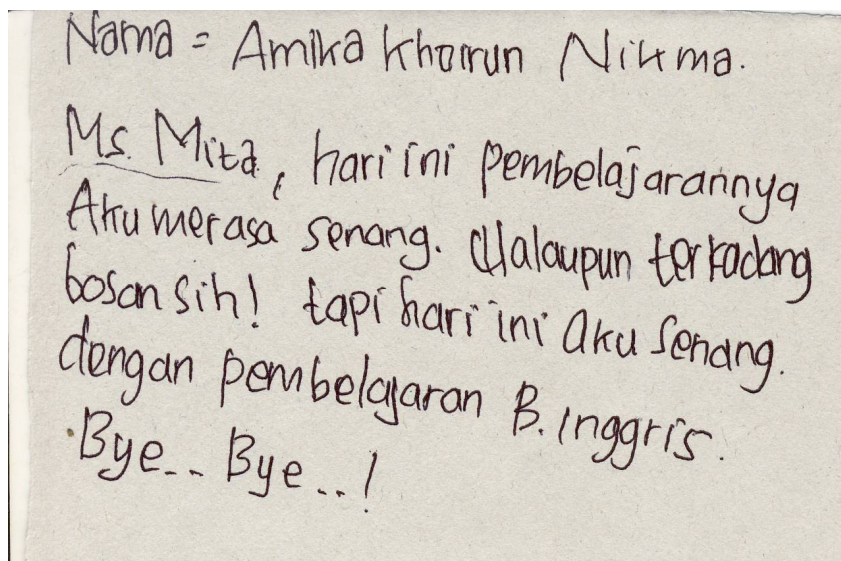 Nama = Amika Khoirun Nikma.
Ms. Mita, hari ini pembelajarannya
Aku merasa senang. Walaupun terkadang
bosan sih! tapi hari ini aku senang.
dengan pembelajaran B. Inggris.
Bye... Bye...!